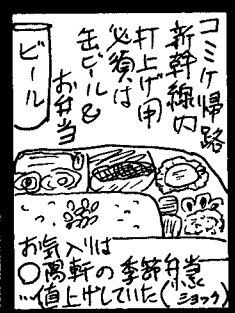 コミケ帰路
新幹線の
打上げ用
必須は
缶ビール&
お弁当
ビール
お気入りは
○萬軒の季節弁当
…値上げしていた(ショック)